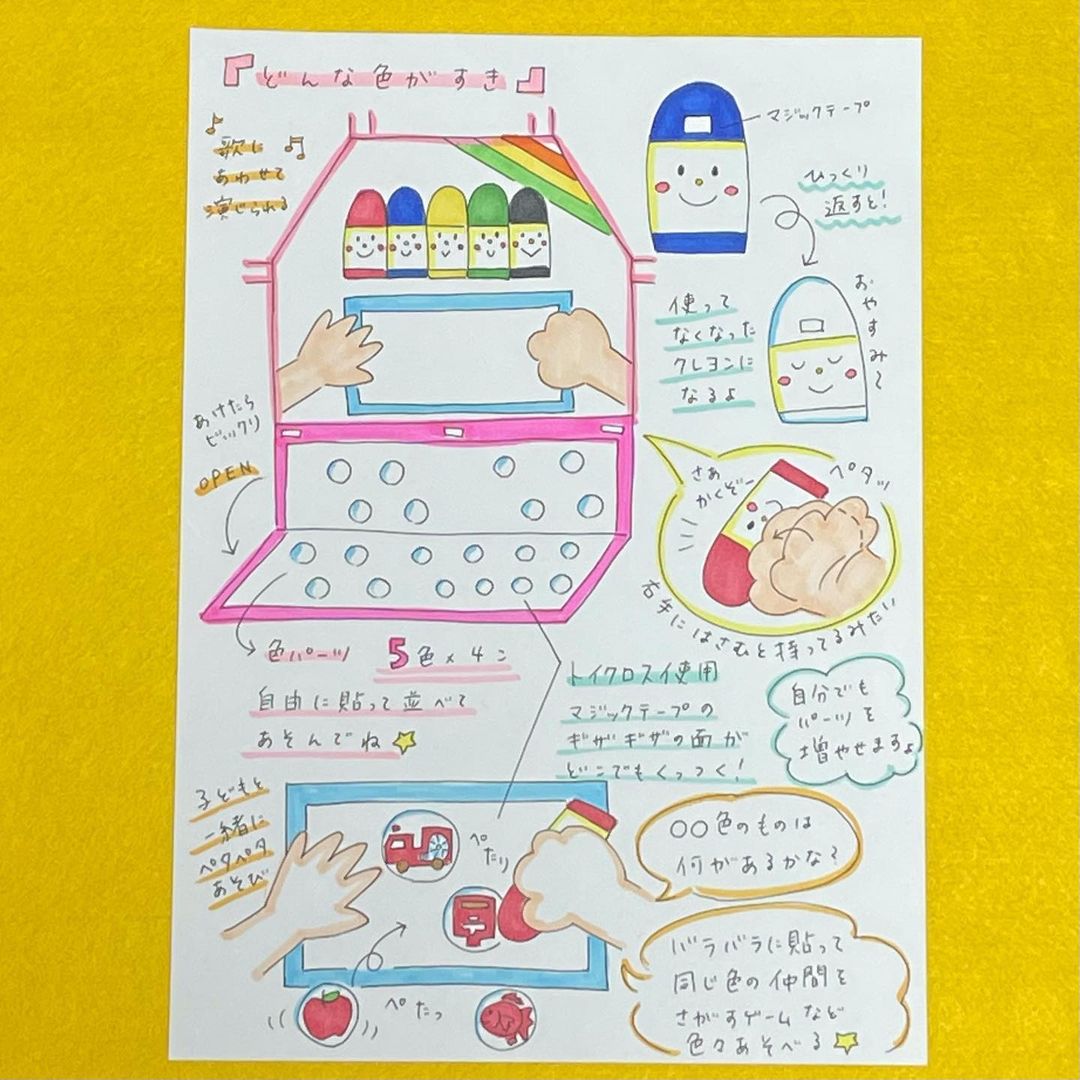 『どんな色がすき』
歌に
あわせて
演じられる
マジックテープ
ひっくり
返すと!
おやすみ〜
使って
なくなった
クレヨンに
なるよ
あけたら
ビックリ
OPEN
さあ
かくぞー
ペタッ
右手にはさむと持ってるみたい
色パーツ 5色×4コ
自由に貼って並べて
あそんでね
トイクロス使用
マジックテープの
ギザギザの面が
どこでもくっつく!
自分でも
パーツを
増やせますよ
子どもと
一緒に
ペタペタ
あそび
ぺ
たり
〇〇色のものは
何があるかな?
バラバラに貼って
同じ色の仲間を
さがすゲームなど
色々あそべる
ぺたっ